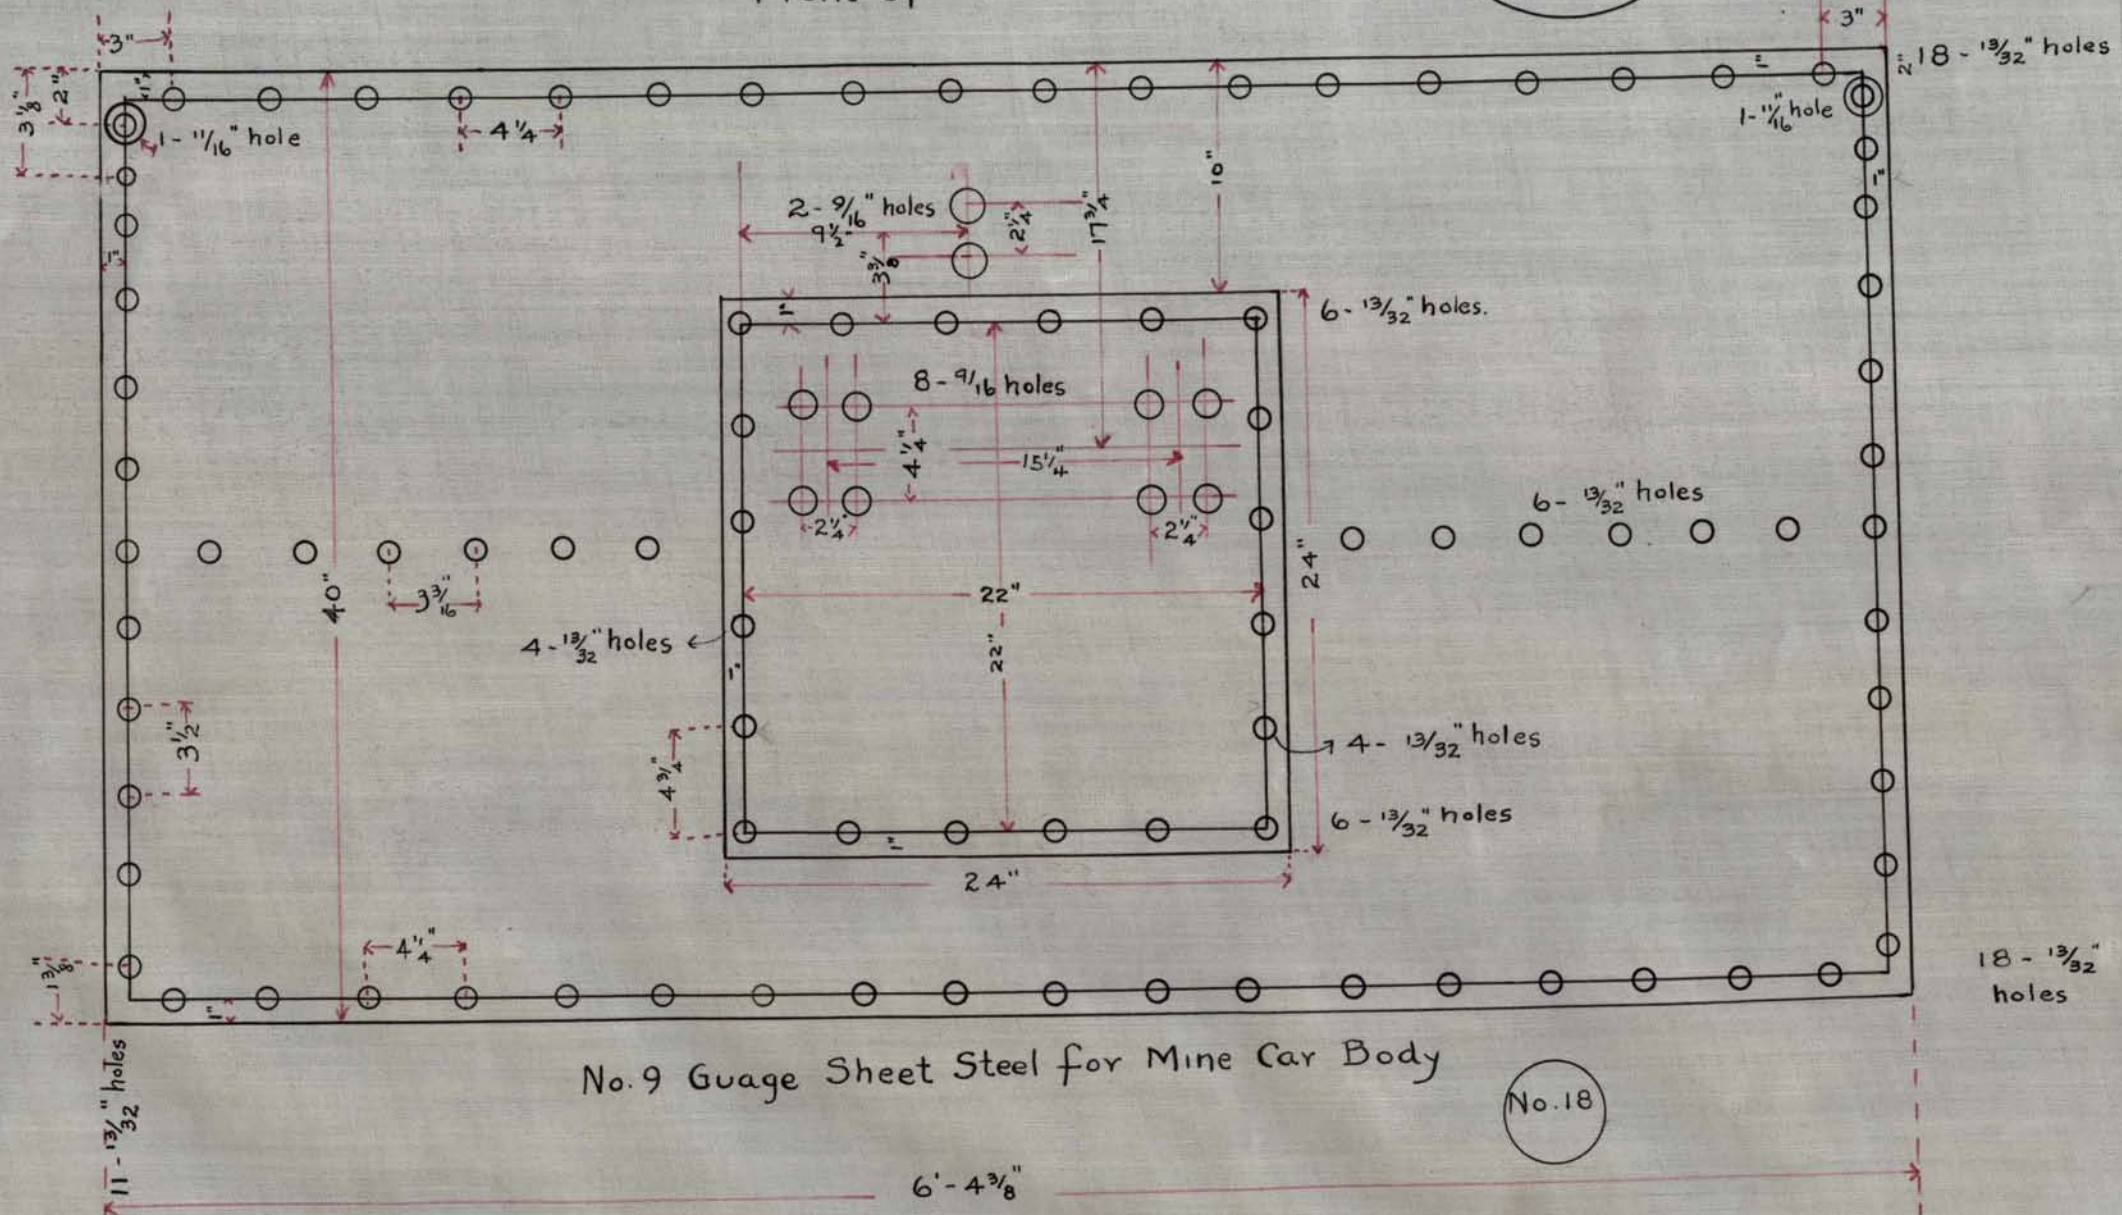 3"
3"
2"
18 - 13/32" holes
3 1/8"
2"
1"
1"
1 - 11/16" hole
4 1/4
1 - 11/16" hole
10"
17 3/4"
1"
2 - 9/16" holes
9 1/2"
2 1/4"
3 3/8"
1"
1"
6 - 13/32" holes.
8 - 9/16 holes
4 1/4"
15 1/4"
2 1/4"
2 1/4"
6 - 13/32" holes
24"
40"
3 3/16"
22"
22"
4 - 13/32" holes
1"
3 1/2"
4 3/4"
4 - 13/32" holes
6 - 13/32" holes
1"
24"
4 1/4"
1 3/8"
1"
18 - 13/32"
holes
11 - 13/32" holes
No. 9 Guage Sheet Steel for Mine Car Body
No. 18
6' - 4 3/8"